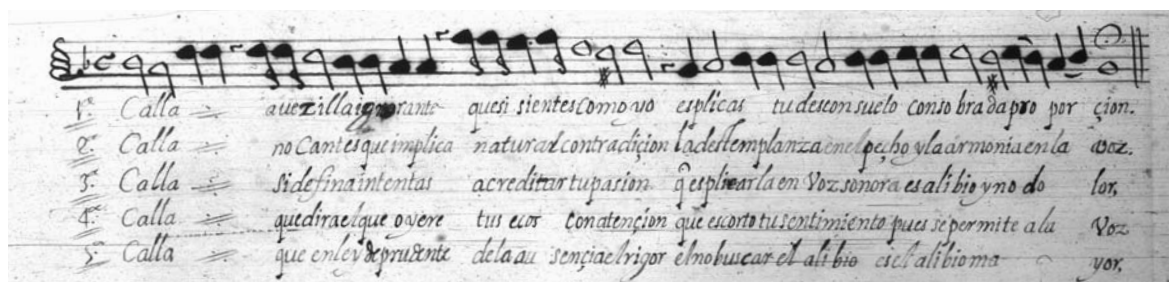 1ª Calla auezilla ignorante que si sientes como yo esplicas tu desconsuelo con sobrada pro por çion.
2ª Calla no Cantes que implica natural contradiçion la destemplanza en el pecho y la armonia en la uoz.
3ª Calla si de fina intentas acreditar tu pasion q̃ esplicarla en Voz sonora es alibio y no do lor,
4ª Calla que dira el que oyere tus ecos con atençion que es corto tu sentimiento pues se permite a la Voz
5ª Calla que en ley de prudente de la au sençia el rigor el no buscar el alibio es el alibio ma yor,